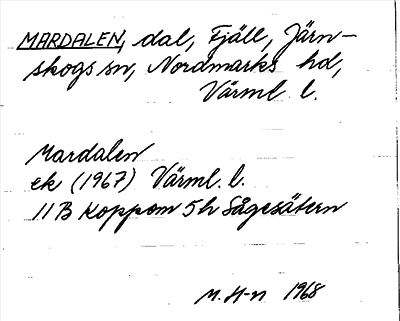 MARDALEN, dal, Fjäll, Järn-
skogs sn, Nordmarks hd,
Värml. l.
Mardalen
ek (1967) Värml. l.
11B Koppom 5h Sågesätern
M. H-n 1968